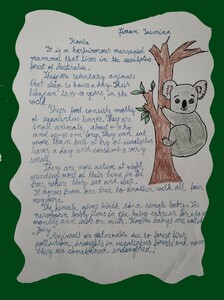 Timan Tasnima
Koala
It is a herbivorous marsupial
mammal that lives in the eucalyptus
forest of Australia.
They are sedentary animals
that sleep hours a day. Their
lifespan is years in the
wild.
Their food consists mostly
of eucalyptus leaves. They are
small animals, about
long. They can eat
more than half of kg of eucalyptus
leaves a day and consume a very
small.
They are more active at night
spending most of their time in the
tree where they eat and
It moves from one tree to another with all four
members.
The female gives birth to a single baby. The
newborn baby lives in the baby carrier for six
months and on with. Koala babies are called
Joey.
Animals vulnerable due to forest fires,
pollution, droughts in eucalyptus forests and now
they are considered endangered.